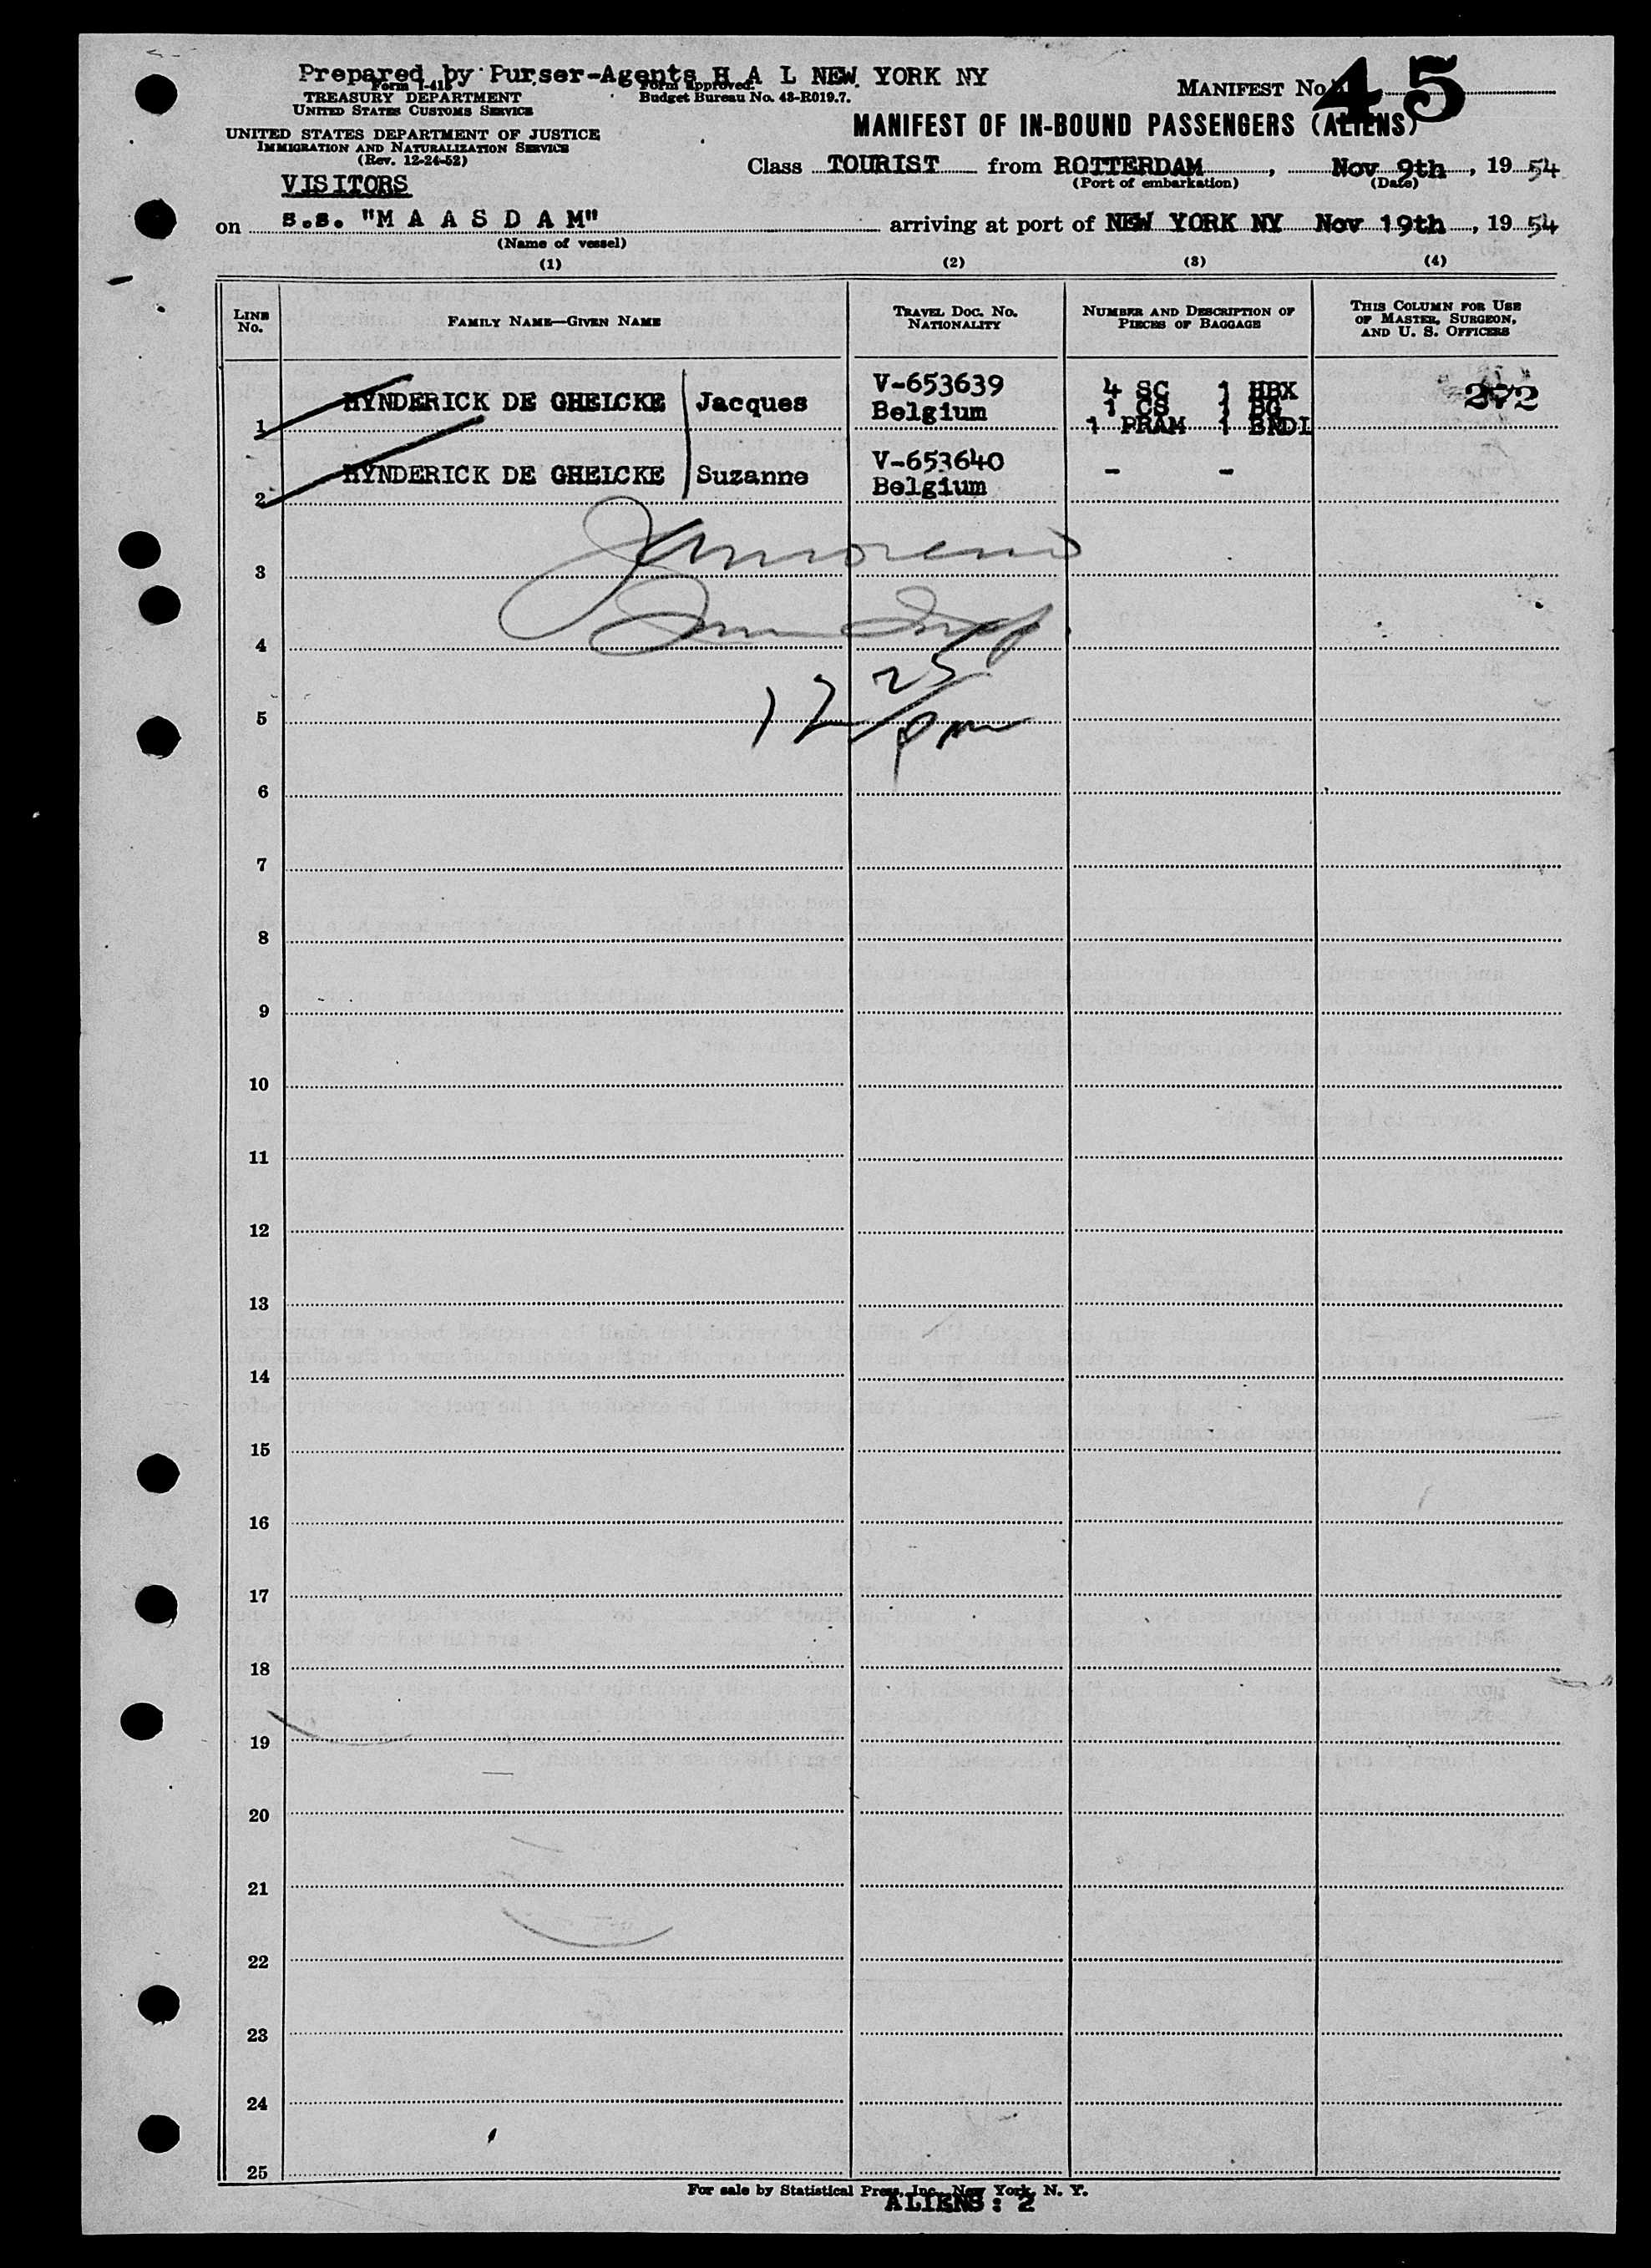 Prepared by Purser-Agents H A L NEW YORK NY
Form I-415
TREASURY DEPARTMENT
UNITED STATES CUSTOMS SERVICE
Form approved.
Budget Bureau No. 43-R019.7.
MANIFEST No. 45
UNITED STATES DEPARTMENT OF JUSTICE
IMMIGRATION AND NATURALIZATION SERVICE
(Rev. 12-24-52)
MANIFEST OF IN-BOUND PASSENGERS (ALIENS)
Class TOURIST from ROTTERDAM, Nov 9th, 19 54
(Port of embarkation) (Date)
VISITORS
on s.s. "M A A S D A M" arriving at port of NEW YORK NY Nov 19th, 19 54
(Name of vessel)
(1) (2) (3) (4)
LINE No. FAMILY NAME—GIVEN NAME TRAVEL DOC. No. NATIONALITY NUMBER AND DESCRIPTION OF PIECES OF BAGGAGE THIS COLUMN FOR USE OF MASTER, SURGEON, AND U. S. OFFICERS
1 HYNDERICK DE GHELCKE Jacques V-653639 Belgium 4 SC 1 HBX 272
1 CS 1 BG
1 PRAM 1 BNDL
2 HYNDERICK DE GHELCKE Suzanne V-653640 Belgium - -
3
4
5 12 25/pm
6
7
8
9
10
11
12
13
14
15
16
17
18
19
20
21
22
23
24
25
For sale by Statistical Press, Inc., New York, N. Y.
ALIENS: 2